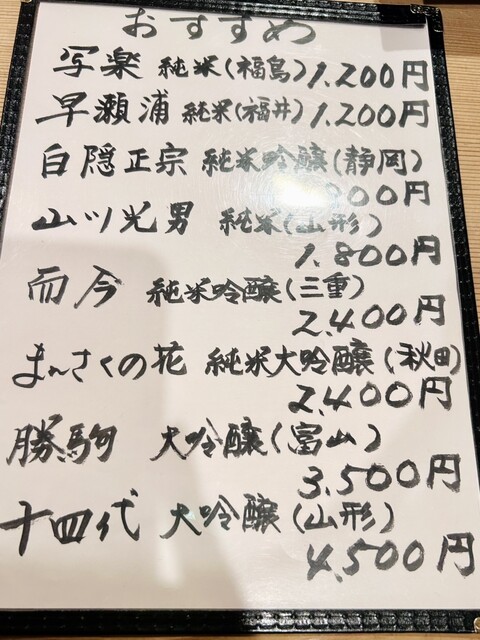 おすすめ
写楽 純米(福島) 1,200円
早瀬浦 純米(福井) 1,200円
白隠正宗 純米吟醸(静岡)
800円
山川光男 純米(山形)
1,800円
而今 純米吟醸(三重)
2,400円
まんさくの花 純米大吟醸(秋田)
2,400円
勝駒 大吟醸(富山)
3,500円
十四代 大吟醸(山形)
4,500円